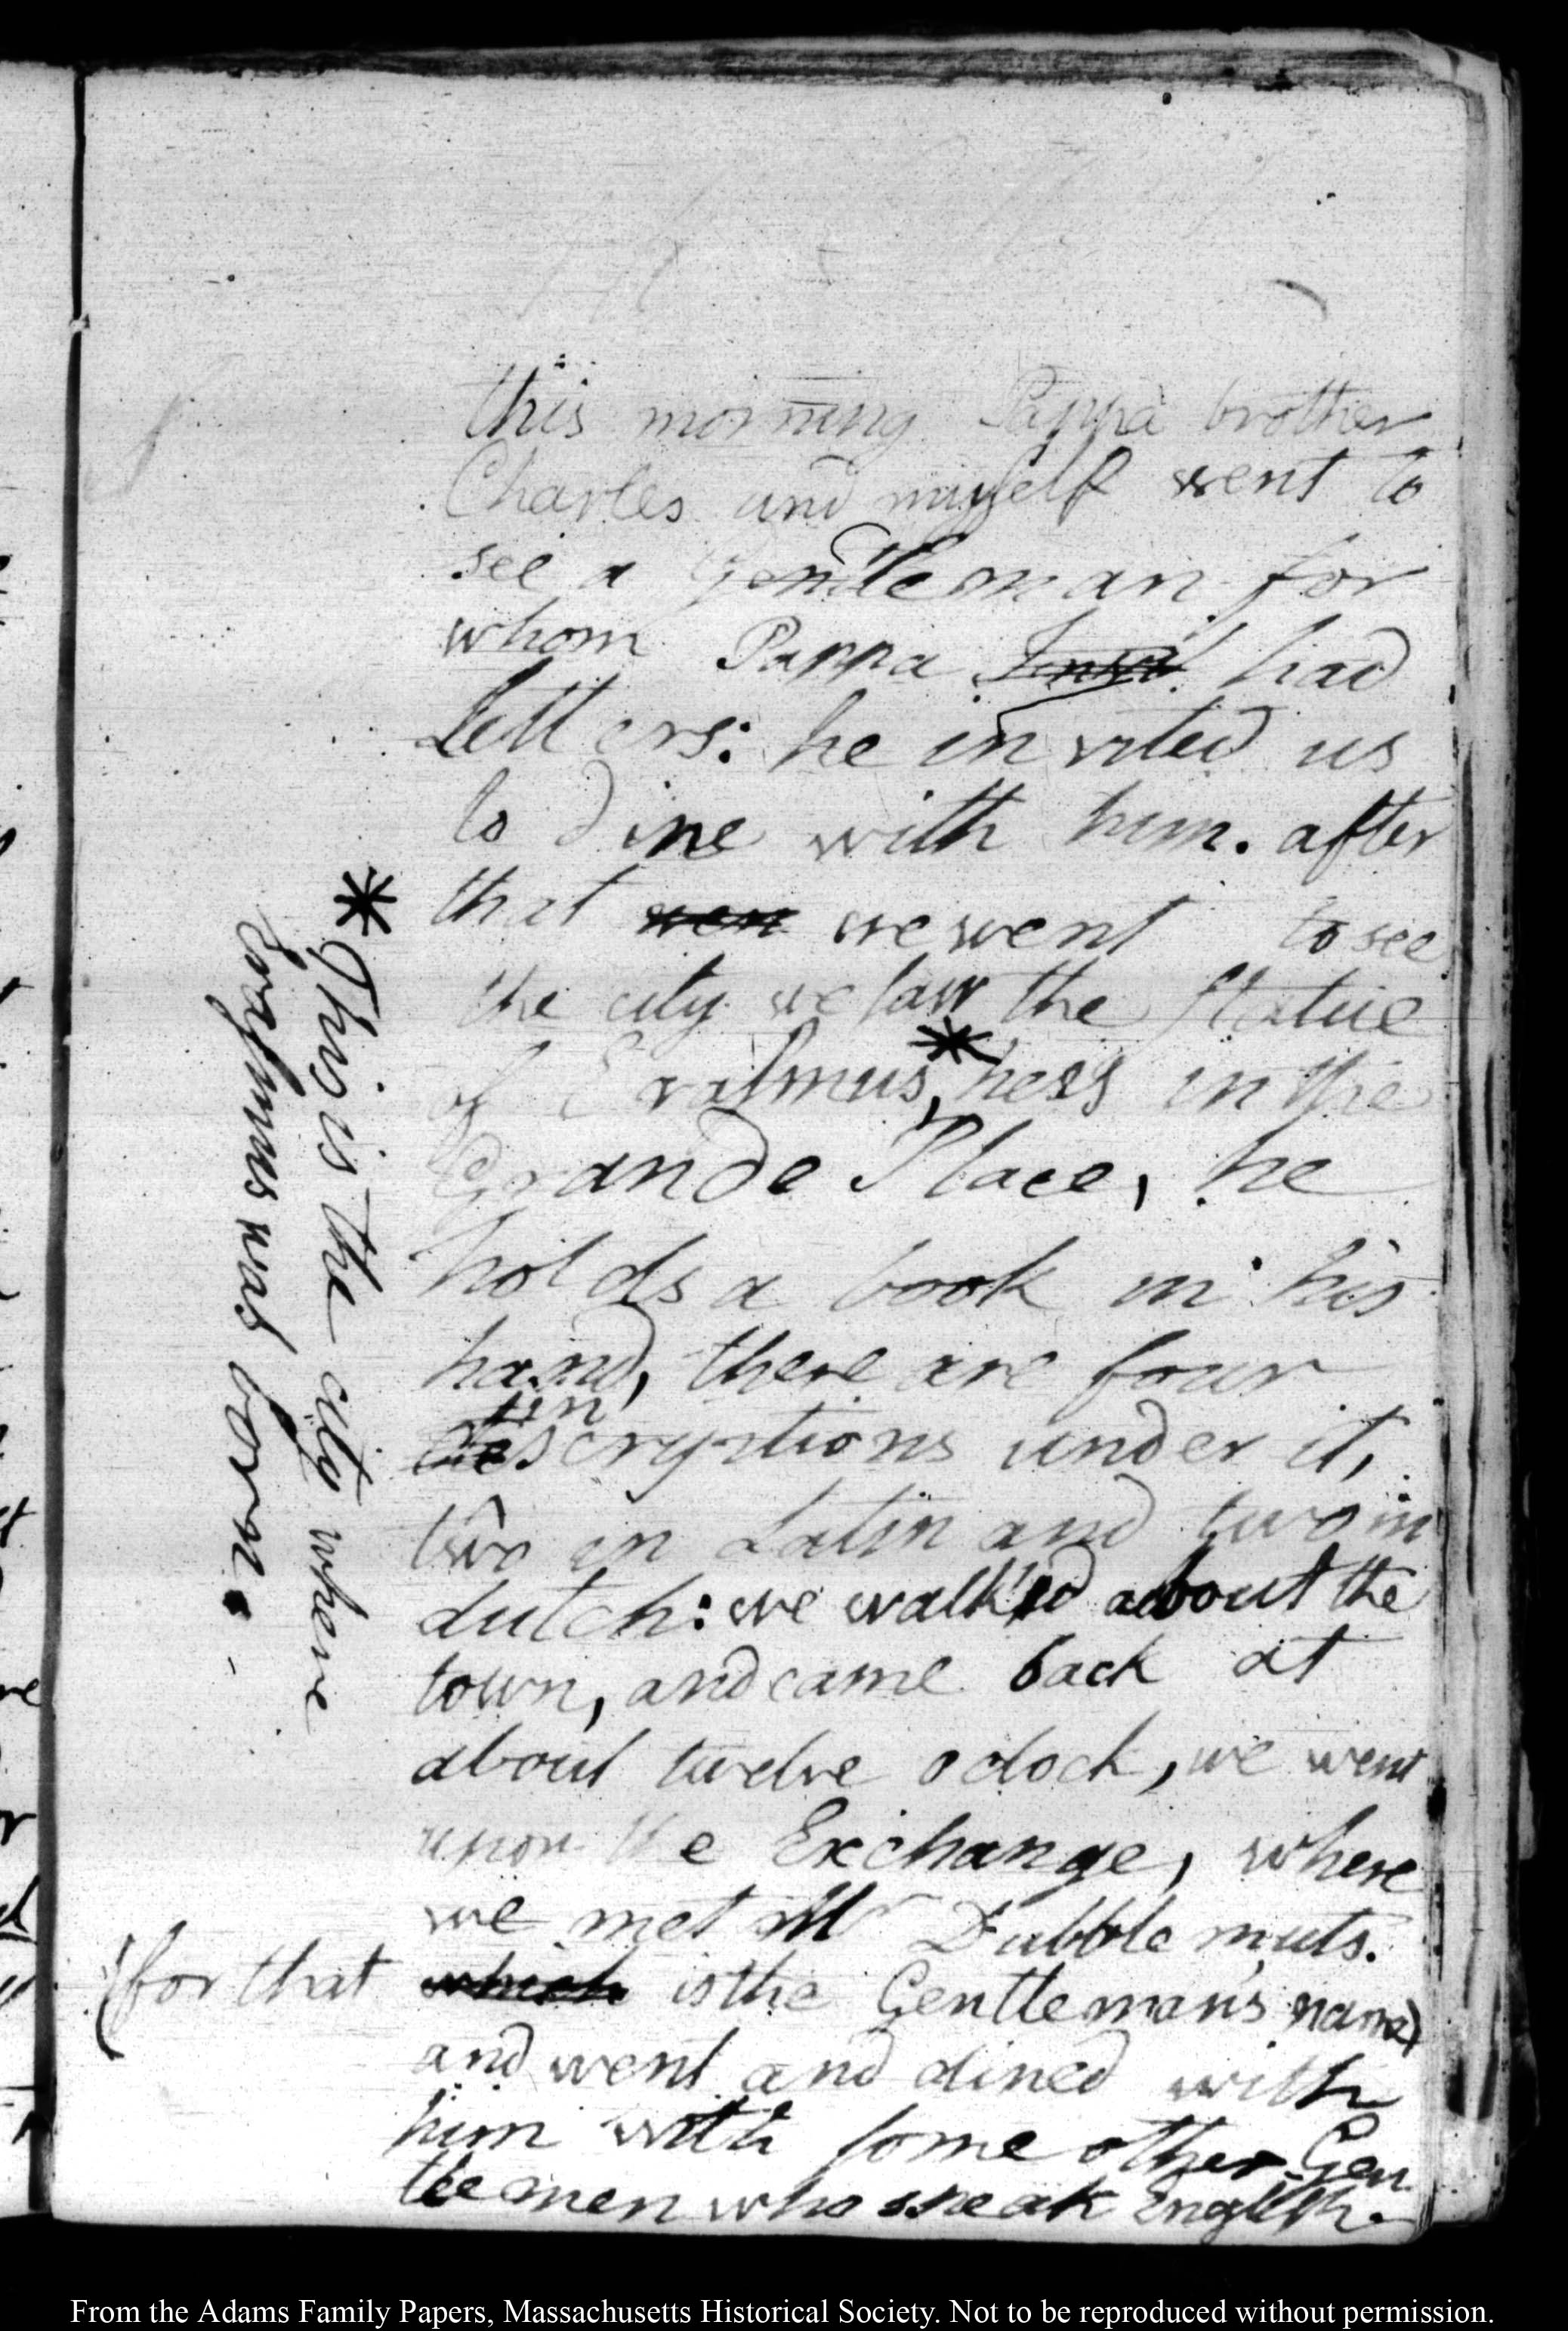 this morning Pappa brother
Charles and myself went to
see a Gentleman for
whom Pappa had
Letters: he invited us
to dine with him. after
that wen we went to see
the city we saw the Statue
of Erasmus,* hess in the
Grande Place, he
holds a book in his
hand, there are four
in
descryptions under it,
two in Latin and two in
dutch: we walk'd about the
town, and came back at
about twelve oclock, we went
upon the Exchange, where
we met Mr Dubblemuts.
(for that which is the Gentleman's name)
and went and dined with
him with some other Gen
tlemen who speak English.
* This is the city where
Erasmus was born.
From the Adams Family Papers, Massachusetts Historical Society. Not to be reproduced without permission.